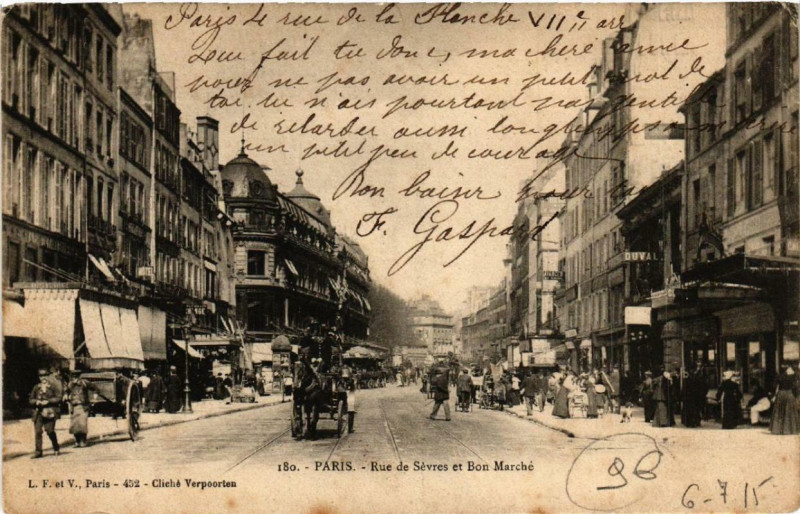 Paris 4 rue de la Planche VIIe arr
Que fait tu donc, ma chère amie
pour ne pas avoir un petit mot de
toi, tu n'ais pourtant pas gentille
de retarder aussi longtemps
un petit peu de courage
Bon baiser pour toi
F. Gaspard
DUVAL
180. - PARIS. - Rue de Sèvres et Bon Marché
L. F. et V., Paris - 452 - Cliché Verpoorten